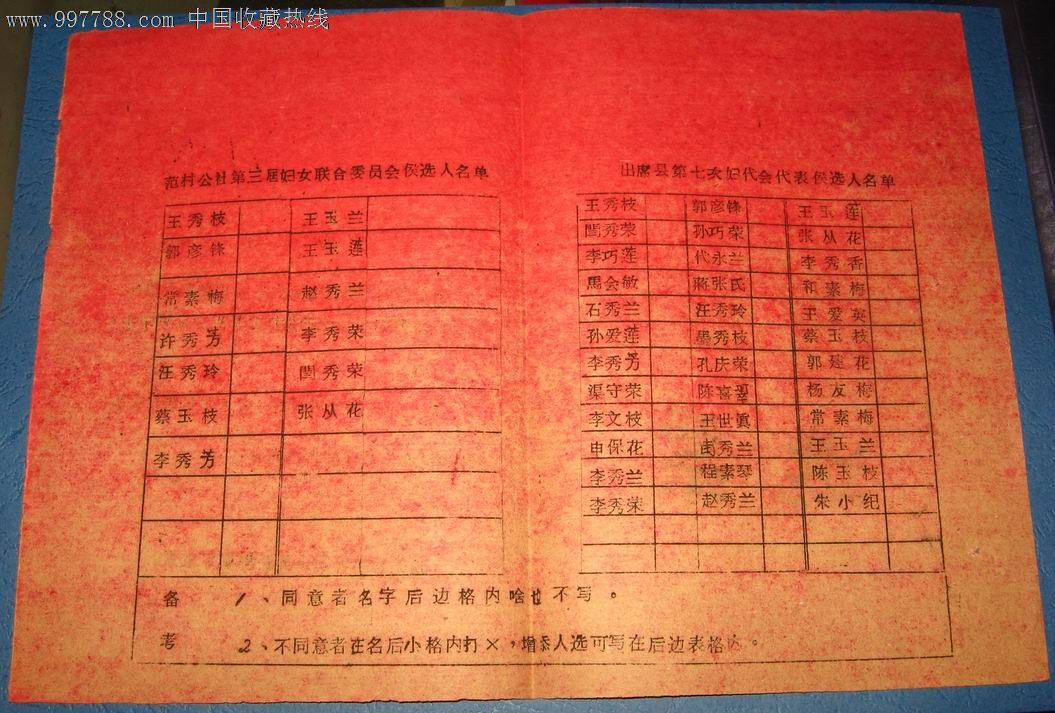 www.997788.com 中国收藏热线
范村公社第三届妇女联合委员会侯选人名单
王秀枝 王玉兰
郭彦锋 王玉莲
常素梅 赵秀兰
许秀芳 李秀荣
汪秀玲 闫秀荣
蔡玉枝 张从花
李秀芳
出席县第七次妇代会代表侯选人名单
王秀枝 郭彦锋 王玉莲
闫秀荣 孙巧荣 张从花
李巧莲 代永兰 李秀香
馬会敏 蒋张氏 和素梅
石秀兰 汪秀玲 王爱英
孙爱莲 墨秀枝 蔡玉枝
李秀芳 孔庆荣 郭建花
渠守荣 陈喜 杨友梅
李文枝 王世真 常素梅
申保花 秀兰 王玉兰
李秀兰 程素琴 陈玉枝
李秀荣 赵秀兰 朱小纪
备考
1、同意者名字后边格内啥也不写。
2、不同意者在名后小格内打×,增添人选可写在后边表格内。